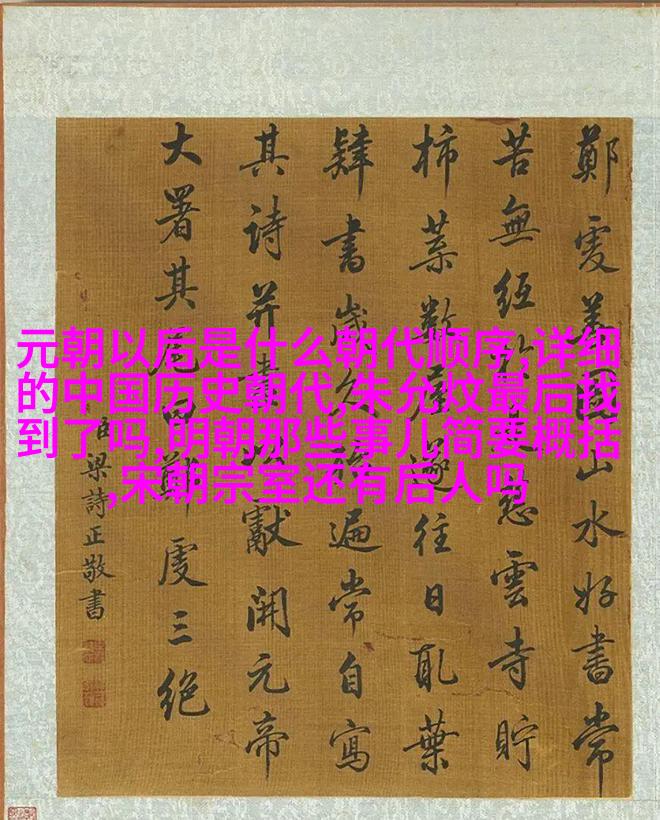 元朝以后是什么朝代顺序,详细
的中国历史朝代,朱允炆最后找
到了吗,明朝那些事儿简要概括
,宋朝宗室还有后人吗
鄭虔善圖山水好書常
苦無紙雲寺貯
柿葉數屋遂往日取葉
肄書歲久遍常自寫
其詩并畫以獻開元帝
大署其尾曰鄭虔三絕
臣梁詩正敬書